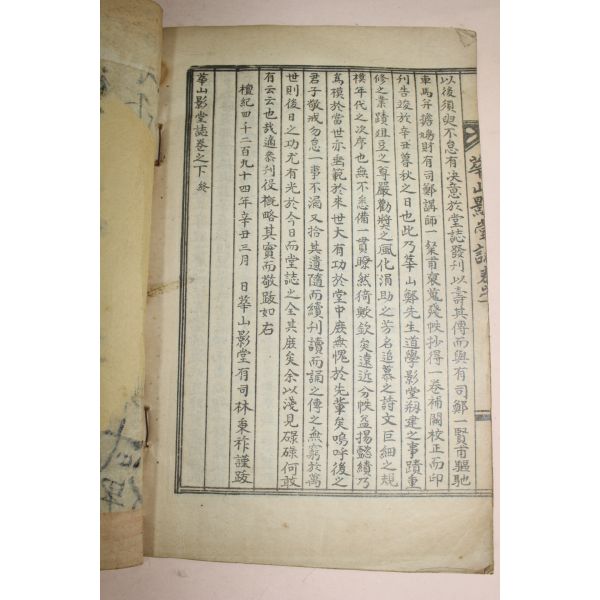 華山影堂誌卷之下
以後須臾不怠有決意於堂誌發刊以壽其傳而與有司鄭一賢甫驅馳
車馬斧擔鳩財有司鄭講師一粲甫裒蒐殘帙抄得一卷補闕校正而印
刊告竣於辛丑暮秋之日也此乃華山鄭先生道學影堂刱建之事蹟重
修之業蹟俎豆之尊嚴勸奬之風化涓助之芳名追慕之詩文巨細之規
模年代之次序也無不悉備一貫瞭然猗歟欽矣遠近分帙益揚懿績乃
爲模於當世亦垂範於來世大有功於堂中庶無愧於先輩矣嗚呼後之
君子敬戒勿怠一事不漏又拾其遺隨而續刊讀而誦之傳之無窮於萬
世則後日之功尤有光於今日而堂誌之全其庶矣余以淺見碌碌何敢
有云云也哉適參刊役槪略其實而敬跋如右
檀紀四千二百九十四年辛丑三月 日華山影堂有司林東祚謹跋
華山影堂誌卷之下 終